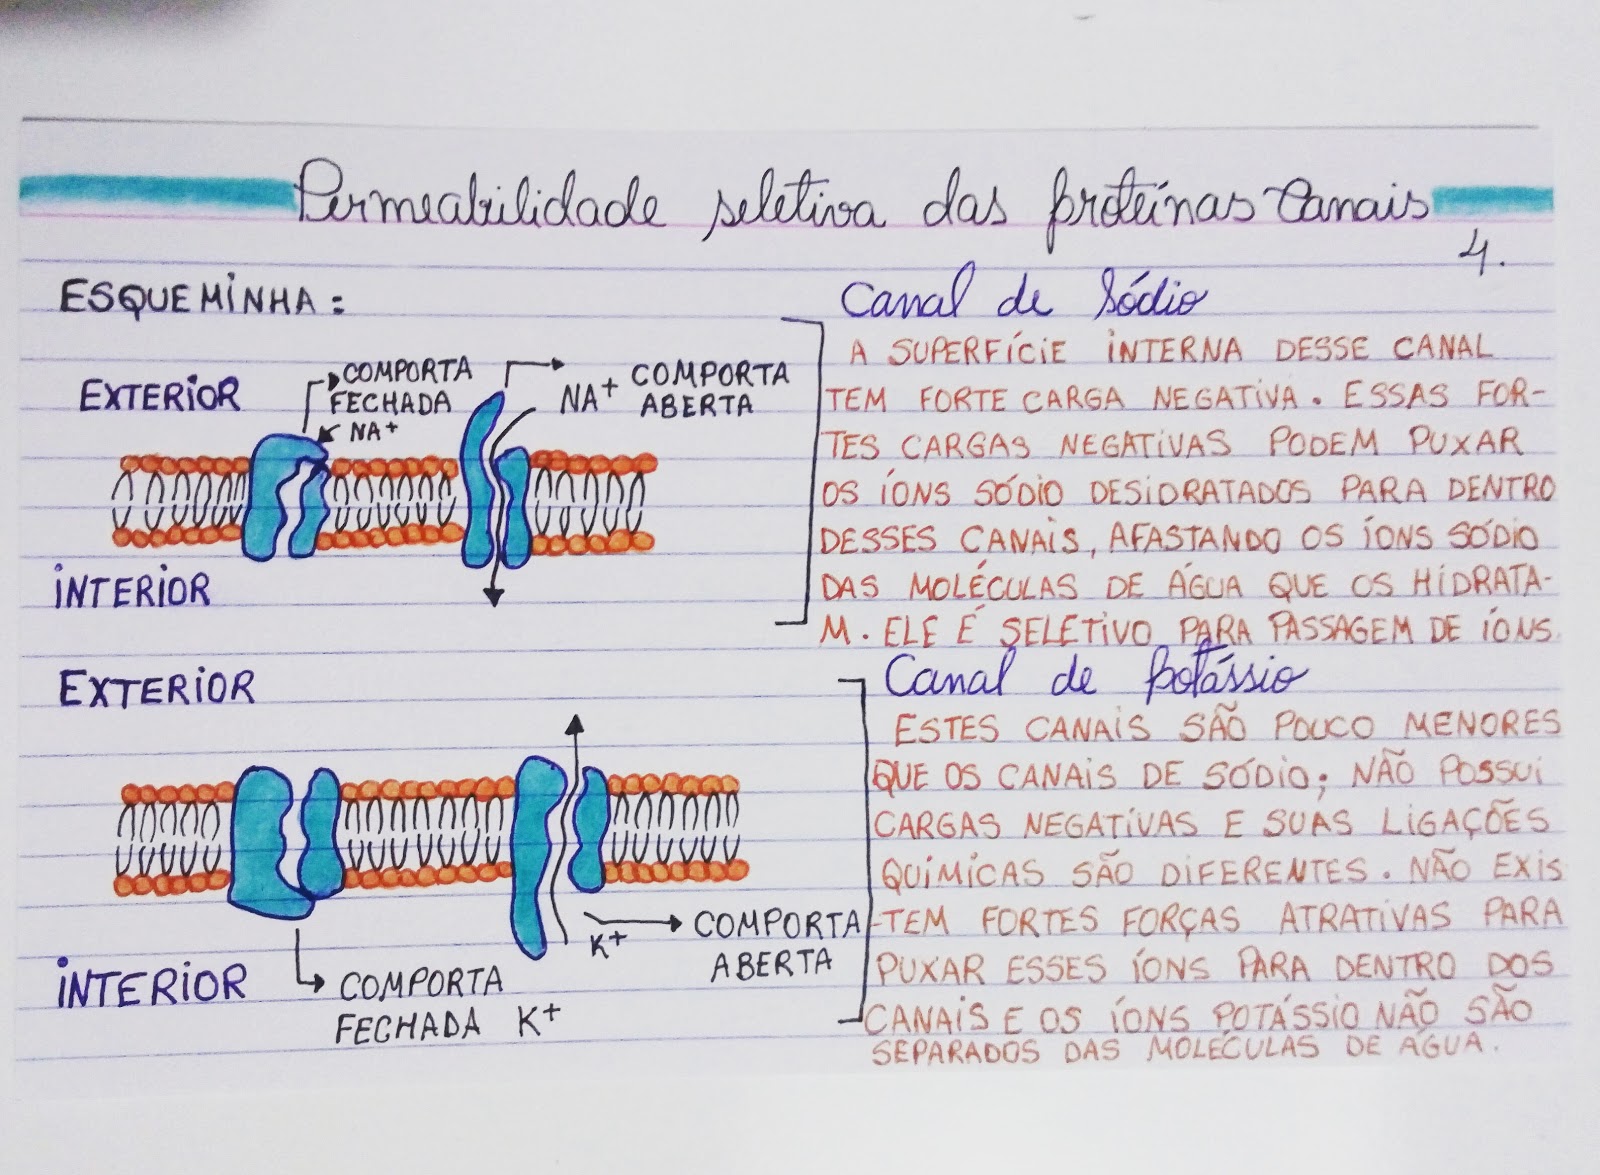 Permeabilidade seletiva das proteínas Canais
4.
ESQUEMINHA:
EXTERIOR
COMPORTA
FECHADA
NA+
NA+
COMPORTA
ABERTA
INTERIOR
Canal de Sódio
A SUPERFÍCIE INTERNA DESSE CANAL
TEM FORTE CARGA NEGATIVA. ESSAS FOR-
TES CARGAS NEGATIVAS PODEM PUXAR
OS ÍONS SÓDIO DESIDRATADOS PARA DENTRO
DESSES CANAIS, AFASTANDO OS ÍONS SÓDIO
DAS MOLÉCULAS DE ÁGUA QUE OS HIDRATA-
M. ELE É SELETIVO PARA PASSAGEM DE ÍONS.
EXTERIOR
INTERIOR
COMPORTA
FECHADA K+
K+
COMPORTA
ABERTA
Canal de Potássio
ESTES CANAIS SÃO POUCO MENORES
QUE OS CANAIS DE SÓDIO; NÃO POSSUI
CARGAS NEGATIVAS E SUAS LIGAÇÕES
QUÍMICAS SÃO DIFERENTES. NÃO EXIS
-TEM FORTES FORÇAS ATRATIVAS PARA
PUXAR ESSES ÍONS PARA DENTRO DOS
CANAIS E OS ÍONS POTÁSSIO NÃO SÃO
SEPARADOS DAS MOLÉCULAS DE ÁGUA.